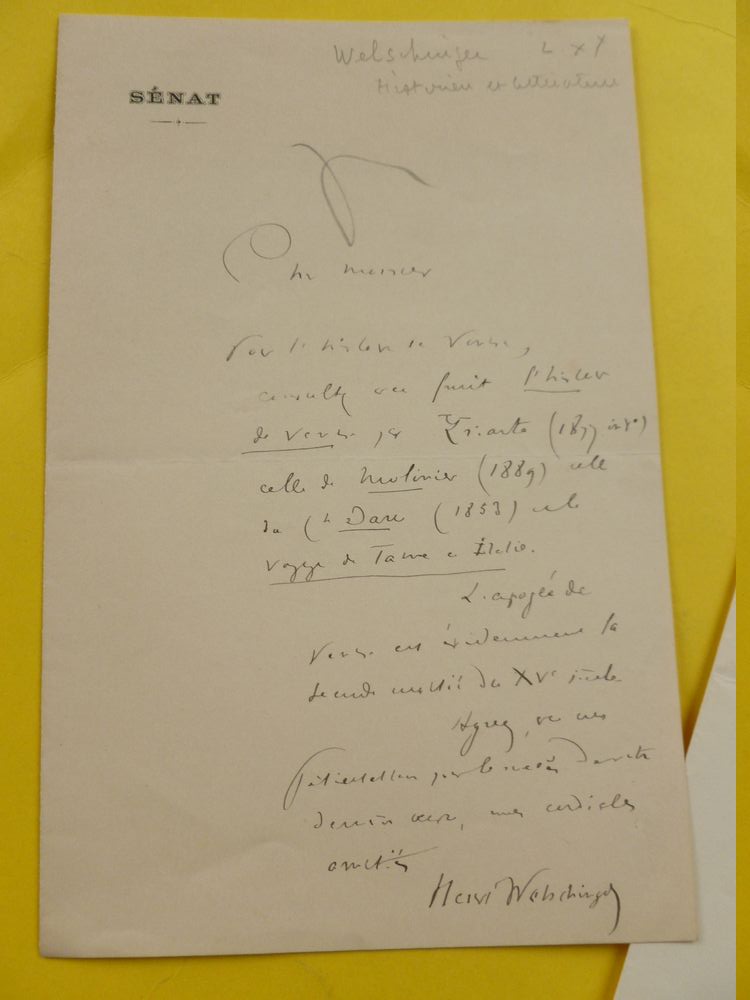 Welschinger L x
Historien et littérature
SÉNAT
Cher monsieur
Pour l'histoire de Venise,
consultez avec fruit l'histoire
de Venise par Yriarte (1877 in
celle de Molinier (1889) celle
du Cte Daru (1853) et le
voyage de Taine en Italie.
L'apogée de
Venise est évidemment la
seconde moitié du XVe siècle
Agréez, avec mes
félicitations pour le succès de votre
dernière œuvre, mes cordiales
amitiés
Henri Welschinger